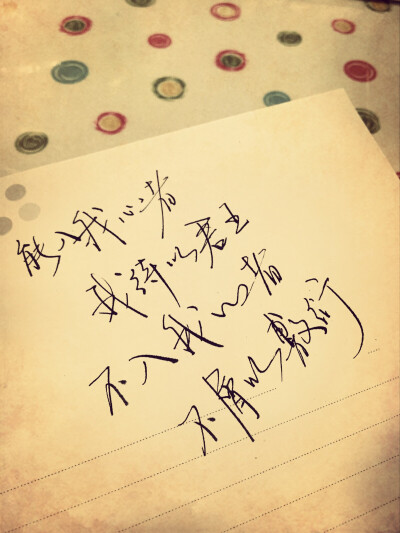 能入我心者
我待以君王
不入我心者
不屑以敷衍